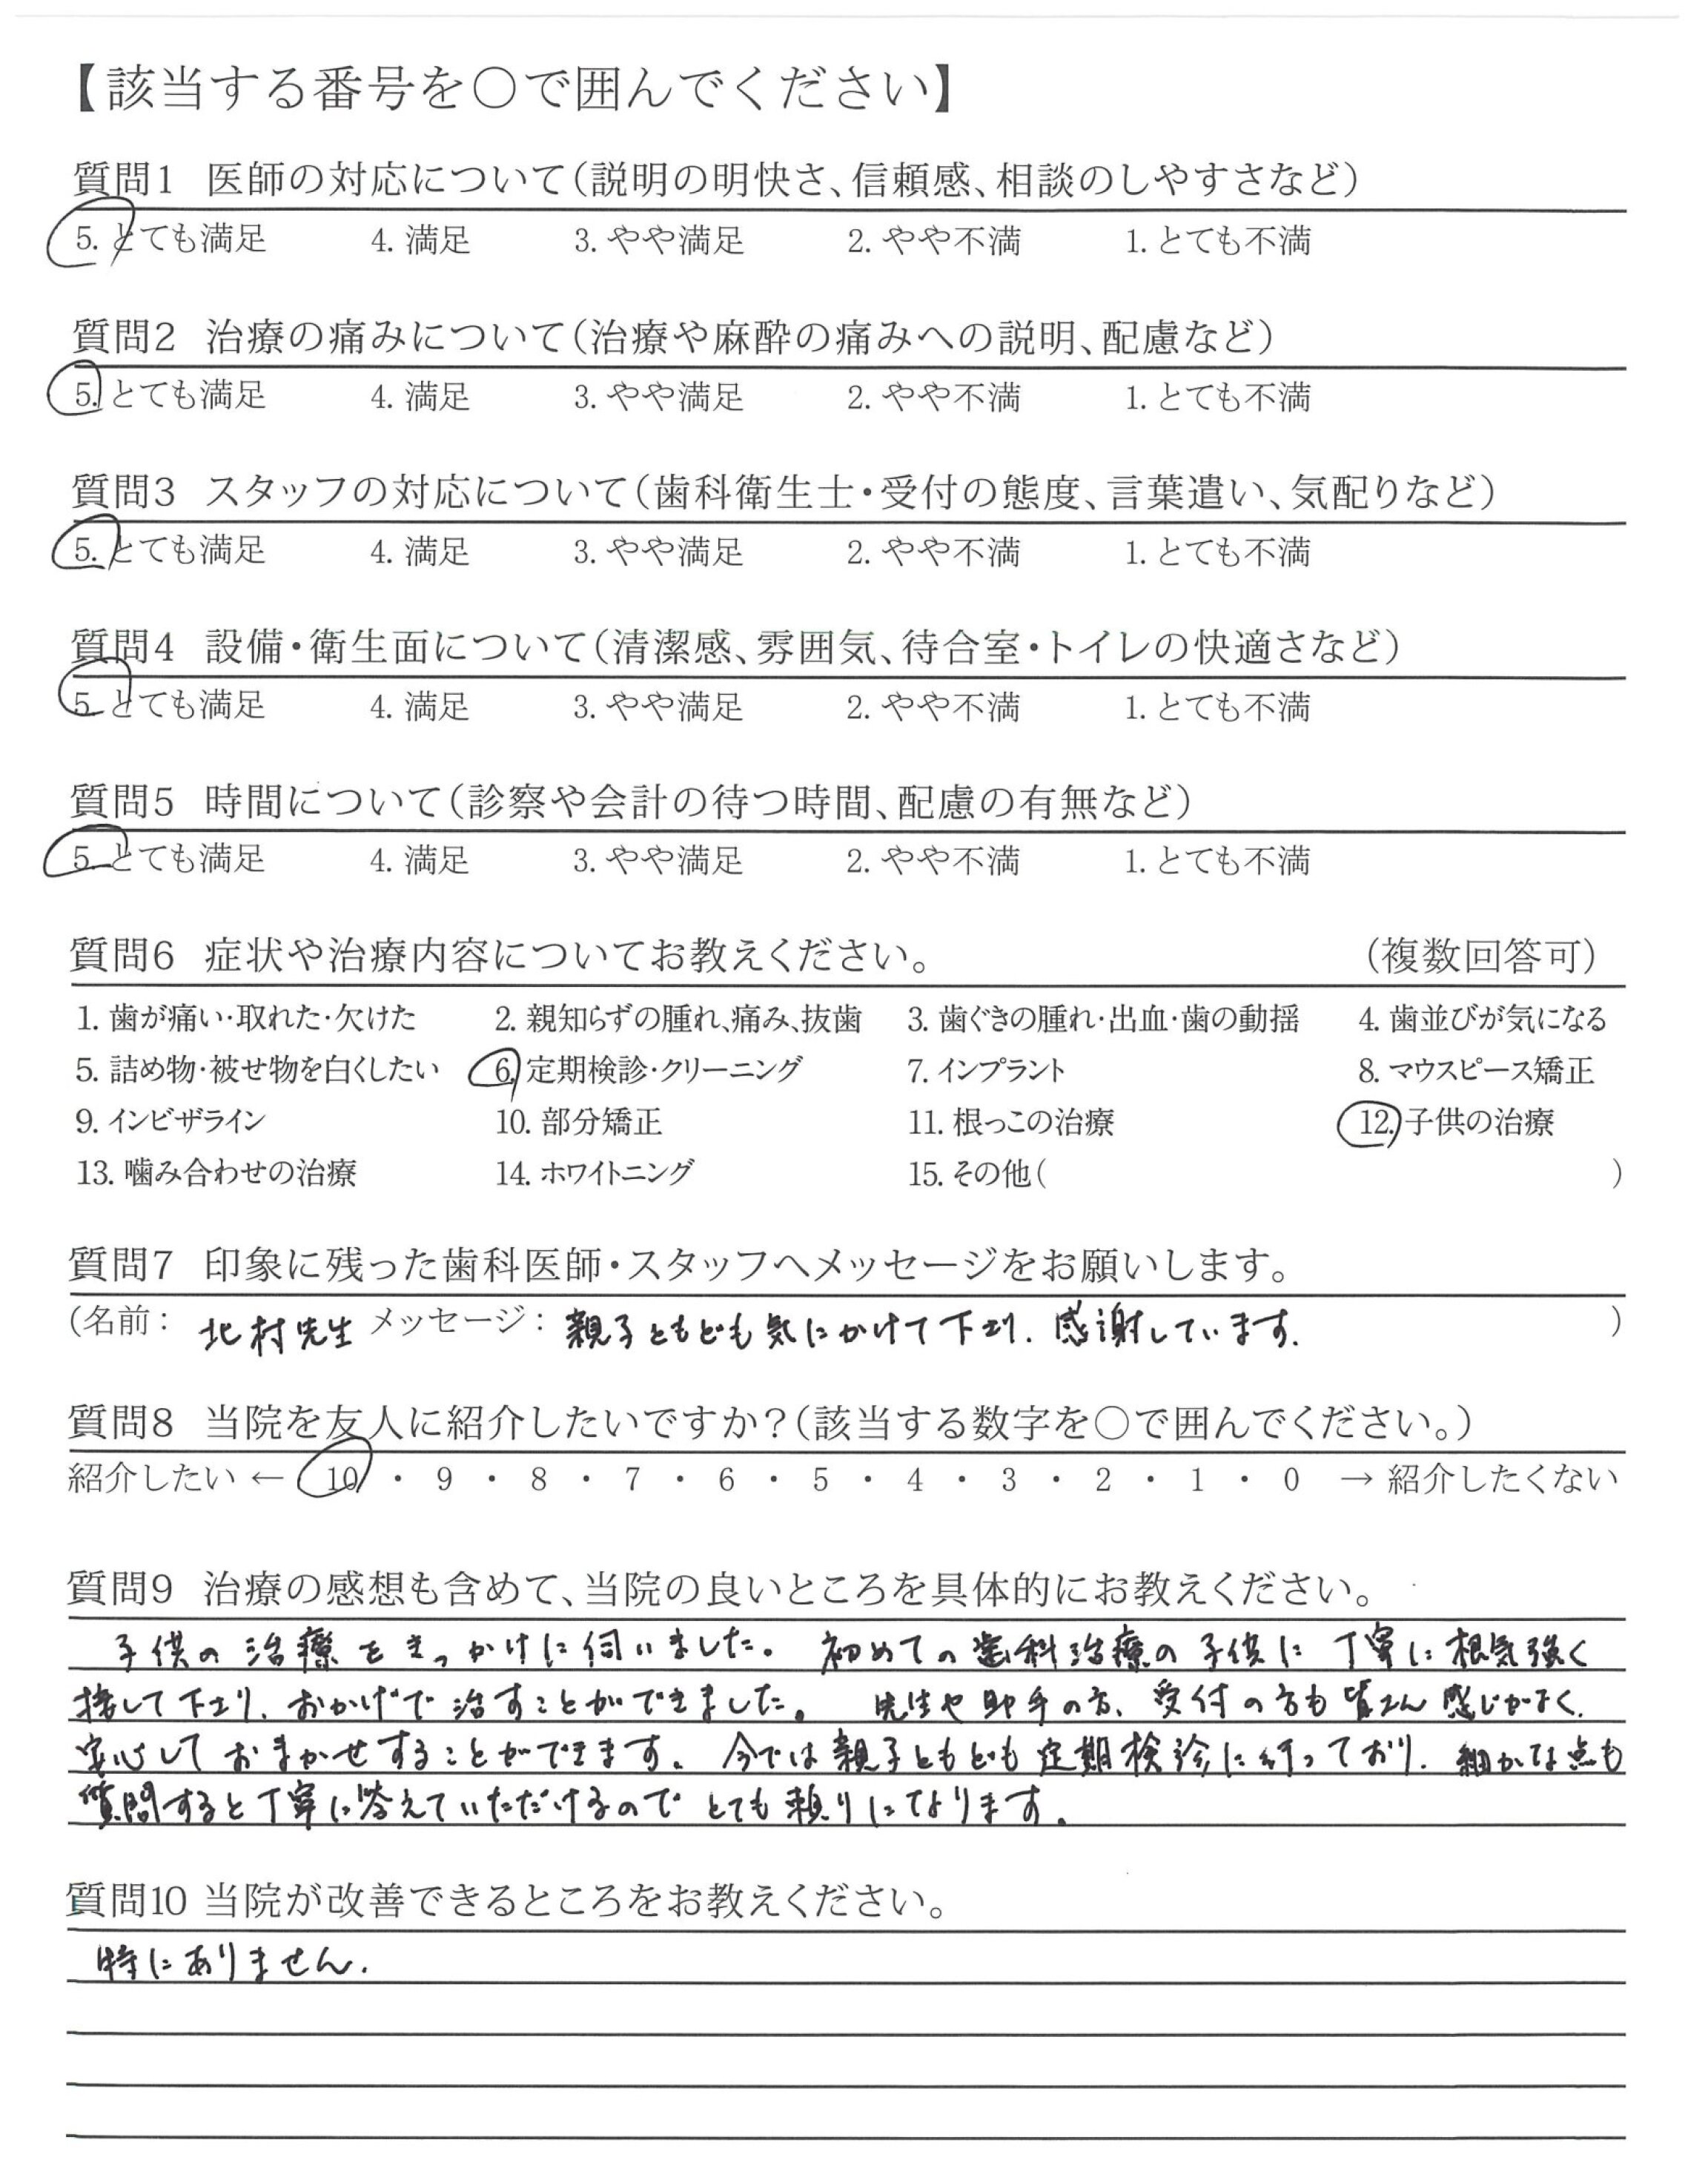 【該当する番号を○で囲んでください】
質問1 医師の対応について(説明の明快さ、信頼感、相談のしやすさなど)
5. とても満足 4. 満足 3. やや満足 2. やや不満 1. とても不満
質問2 治療の痛みについて(治療や麻酔の痛みへの説明、配慮など)
5. とても満足 4. 満足 3. やや満足 2. やや不満 1. とても不満
質問3 スタッフの対応について(歯科衛生士・受付の態度、言葉遣い、気配りなど)
5. とても満足 4. 満足 3. やや満足 2. やや不満 1. とても不満
質問4 設備・衛生面について(清潔感、雰囲気、待合室・トイレの快適さなど)
5. とても満足 4. 満足 3. やや満足 2. やや不満 1. とても不満
質問5 時間について(診察や会計の待つ時間、配慮の有無など)
5. とても満足 4. 満足 3. やや満足 2. やや不満 1. とても不満
質問6 症状や治療内容についてお教えください。 (複数回答可)
1. 歯が痛い・取れた・欠けた 2. 親知らずの腫れ、痛み、抜歯 3. 歯ぐきの腫れ・出血・歯の動揺 4. 歯並びが気になる
5. 詰め物・被せ物を白くしたい 6. 定期検診・クリーニング 7. インプラント 8. マウスピース矯正
9. インビザライン 10. 部分矯正 11. 根っこの治療 12. 子供の治療
13. 噛み合わせの治療 14. ホワイトニング 15. その他( )
質問7 印象に残った歯科医師・スタッフへメッセージをお願いします。
(名前: 北村先生 メッセージ: 親子ともども気にかけて下さり、感謝しています。 )
質問8 当院を友人に紹介したいですか?(該当する数字を○で囲んでください。)
紹介したい ← 10 ・ 9 ・ 8 ・ 7 ・ 6 ・ 5 ・ 4 ・ 3 ・ 2 ・ 1 ・ 0 → 紹介したくない
質問9 治療の感想も含めて、当院の良いところを具体的にお教えください。
子供の治療をきっかけに伺いました。初めての歯科治療の子供に丁寧に根気強く
接して下さり、おかげで治すことができました。先生や助手の方、受付の方も皆さん感じがよく、
安心しておまかせすることができます。今では親子ともども定期検診に行っており、細かな点も
質問すると丁寧に答えていただけるのでとても頼りになります。
質問10 当院が改善できるところをお教えください。
特にありません。